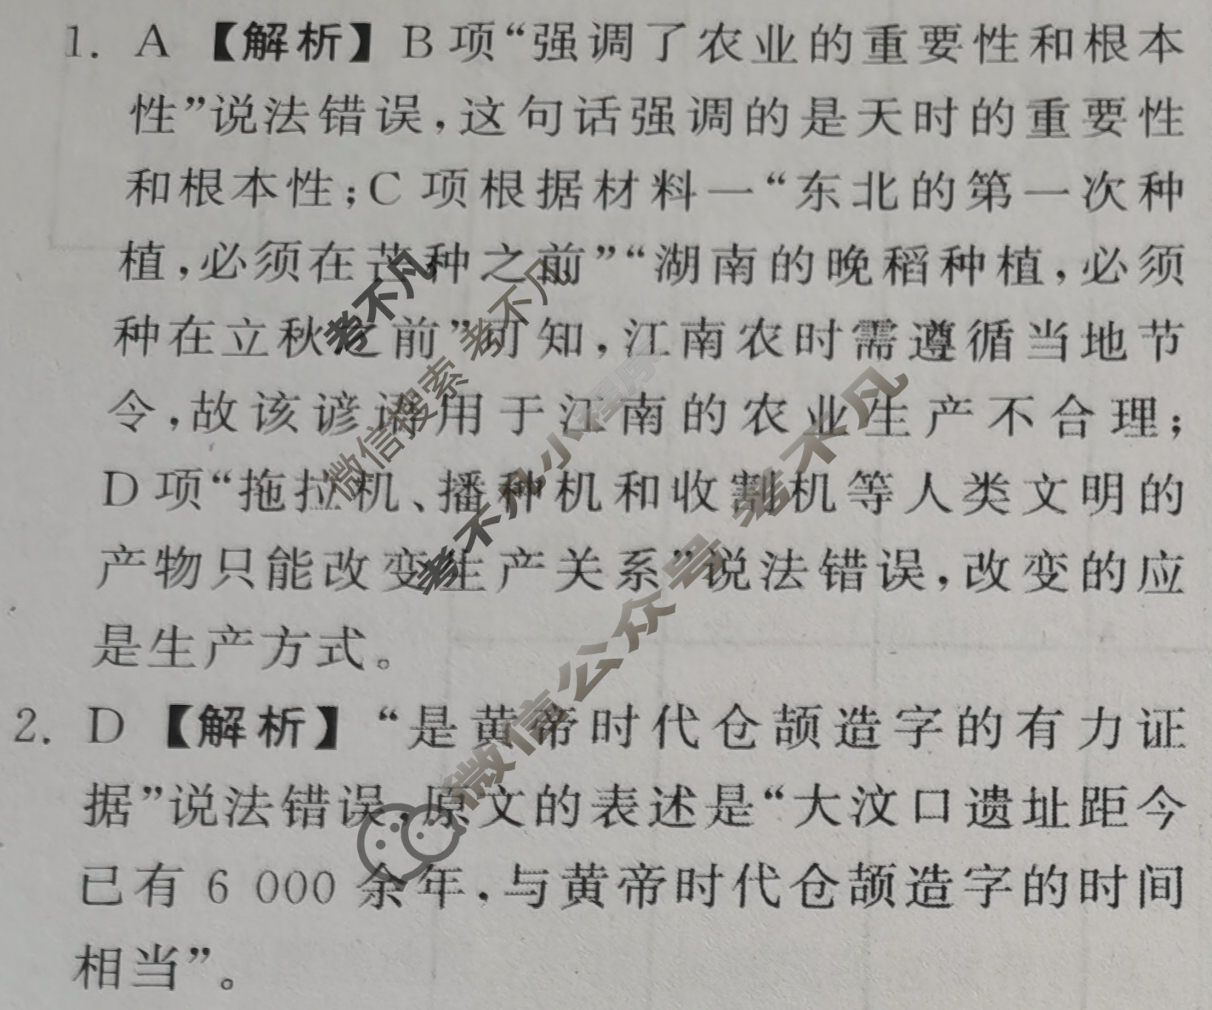 1. A 【解析】 B项“强调了农业的重要性和根本
性”说法错误,这句话强调的是天时的重要性
和根本性;C项根据材料一“东北的第一次种
植,必须在芒种之前”“湖南的晚稻种植,必须
种在立秋之前”可知,江南农时需遵循当地节
令,故该谚语用于江南的农业生产不合理;
D项“拖拉机、播种机和收割机等人类文明的
产物只能改变生产关系”说法错误,改变的应
是生产方式。
2. D 【解析】 “是黄帝时代仓颉造字的有力证
据”说法错误,原文的表述是“大汶口遗址距今
已有 6 000 余年,与黄帝时代仓颉造字的时间
相当”。
考不凡
微信搜索 考不凡
考不凡小程序
微信公众号 考不凡